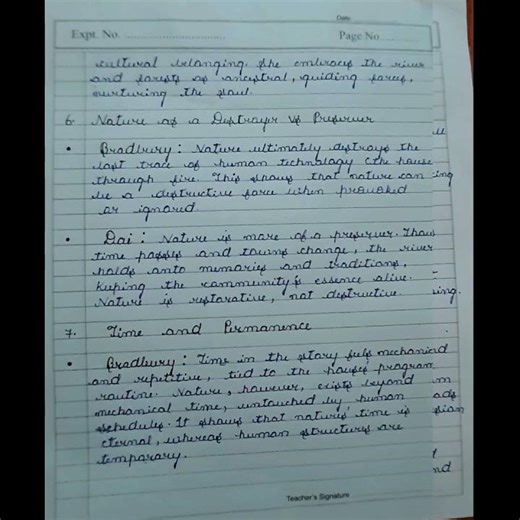 Date
Expt. No. ............................
Page No. ............
cultural belonging. She embraces the river
and forests as ancestral, guiding forces,
nurturing the soul.
6. Nature as a Destroyer vs Preserver
• Bradbury: Nature ultimately destroys the
last trace of human technology (the house
through fire. This shows that nature can
be a destructive force when provoked
or ignored.
• Dai: Nature is more of a preserver. Though
time passes and towns change, the river
holds onto memories and traditions,
keeping the community's essence alive.
Nature is restorative, not destructive.
7. Time and Permanence
• Bradbury: Time in the story feels mechanical
and repetitive, tied to the house's program
routine. Nature, however, exists beyond
mechanical time, untouched by human
schedules. It shows that nature's time is
eternal, whereas human structures are
temporary.
ing
ing.
ads
sian
nd
Teacher's Signature